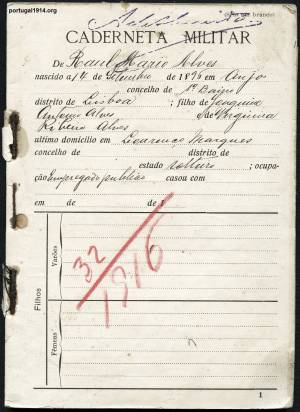 portugal1914.org
CADERNETA MILITAR
De Raul Mario Alves
nascido a 14 de Setembro de 1896 em Anjo
concelho de 1º Bairro
distrito de Lisboa ; filho de Joaquim
Antonio Alves e de Virginia
Ribeiro Alves
ultimo domicilio em Lourenço Marques
concelho de distrito de
estado solteiro ; ocupa-
ção empregado publico casou com
em de de 1
32
1916
Filhos
Varões
Fêmeas
1